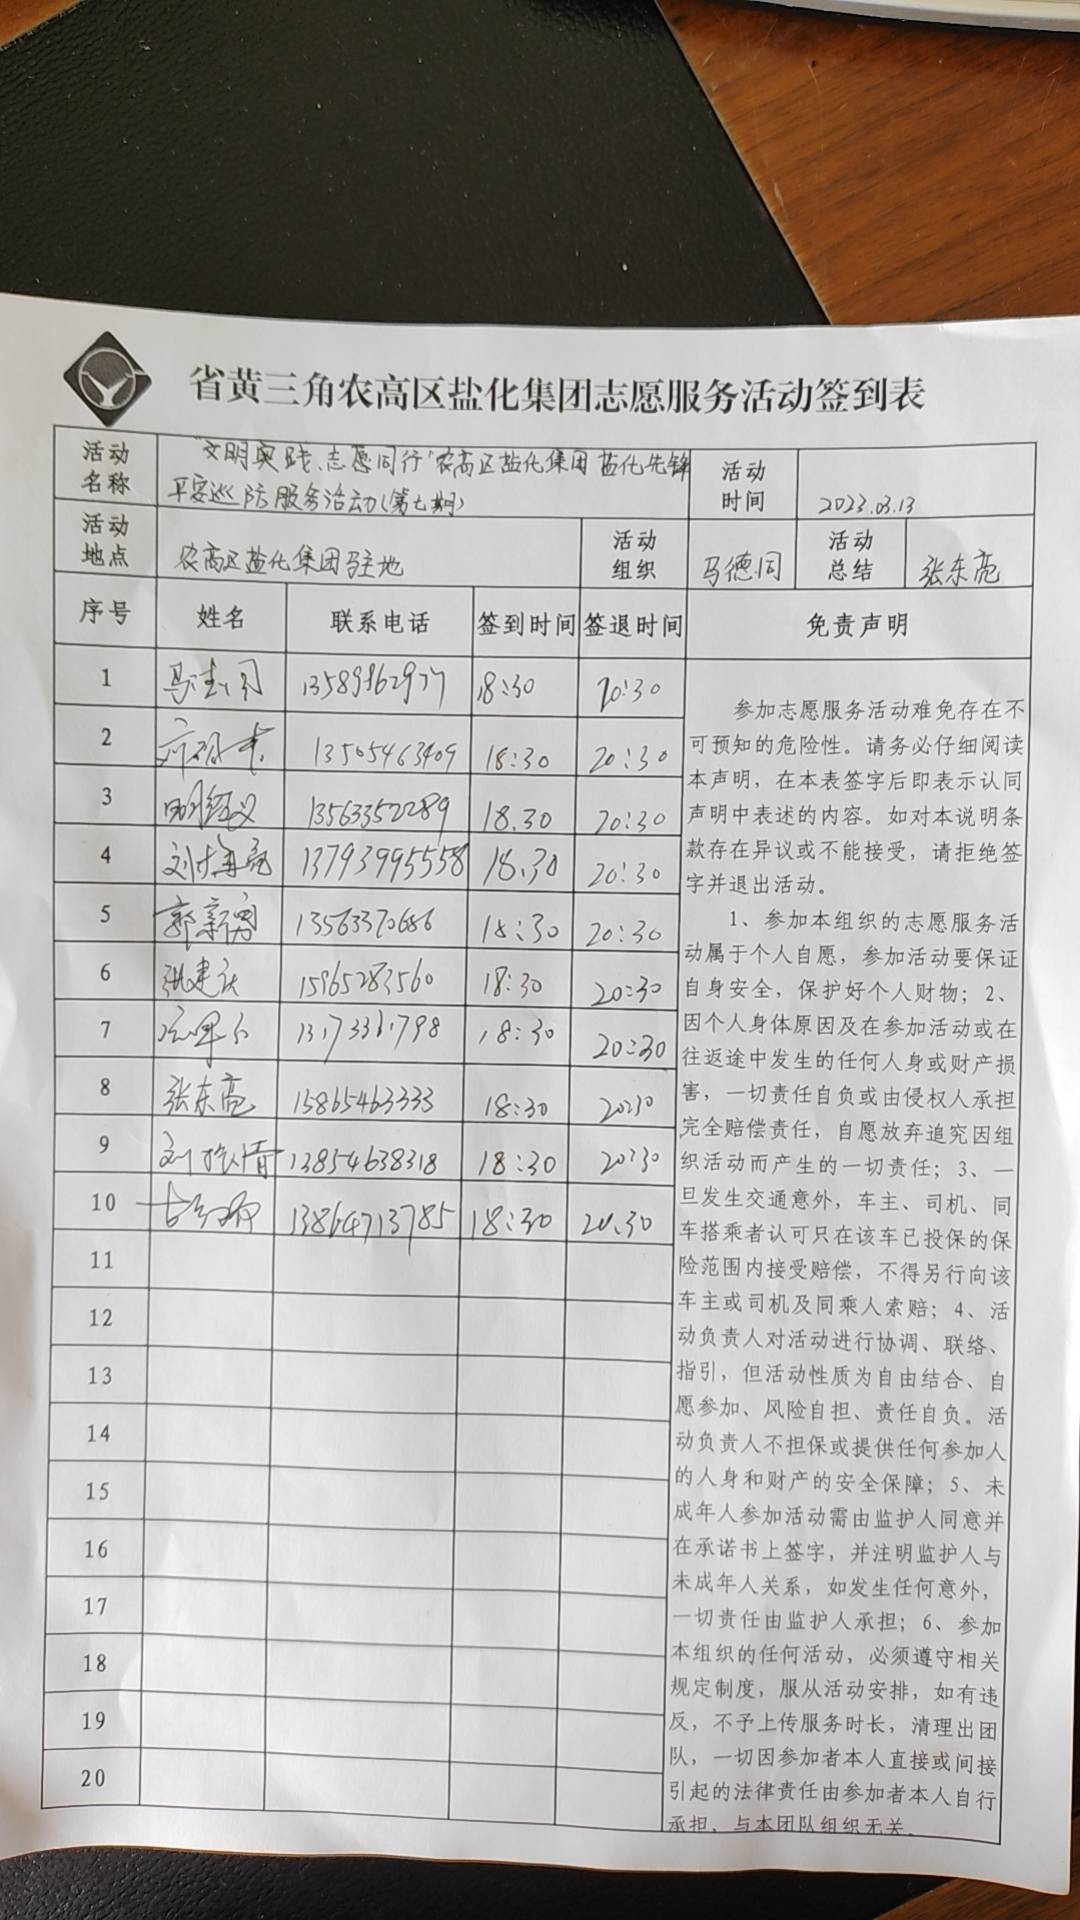 省黄三角农高区盐化集团志愿服务活动签到表
活动名称 "文明实践、志愿同行"农高区盐化集团盐化先锋 活动时间 2023.03.13
平安巡防服务活动(第七期)
活动地点 农高区盐化集团驻地 活动组织 马德同 活动总结 张东亮
序号 姓名 联系电话 签到时间 签退时间 免责声明
1 马德同 18:30 20:30
2 13505463409 18:30 20:30
3 13563352289 18.30 20:30
4 13793995558 18.30 20:30
5 郭新 13563370686 18:30 20:30
6 张建 15965283560 18:30 20:30
7 18:30 20:30
8 张东亮 15865463333 18:30 20:30
9 刘 13854638318 18:30 20:30
10 13864713785 18:30 20.30
11
12
13
14
15
16
17
18
19
20
参加志愿服务活动难免存在不
可预知的危险性。请务必仔细阅读
本声明，在本表签字后即表示认同
声明中表述的内容。如对本说明条
款存在异议或不能接受，请拒绝签
字并退出活动。
1、参加本组织的志愿服务活
动属于个人自愿，参加活动要保证
自身安全，保护好个人财物；2、
因个人身体原因及在参加活动或在
往返途中发生的任何人身或财产损
害，一切责任自负或由侵权人承担
完全赔偿责任，自愿放弃追究因组
织活动而产生的一切责任；3、一
旦发生交通意外，车主、司机、同
车搭乘者认可只在该车已投保的保
险范围内接受赔偿，不得另行向该
车主或司机及同乘人索赔；4、活
动负责人对活动进行协调、联络、
指引，但活动性质为自由结合、自
愿参加、风险自担、责任自负。活
动负责人不担保或提供任何参加人
的人身和财产的安全保障；5、未
成年人参加活动需由监护人同意并
在承诺书上签字，并注明监护人与
未成年人关系，如发生任何意外，
一切责任由监护人承担；6、参加
本组织的任何活动，必须遵守相关
规定制度，服从活动安排，如有违
反，不予上传服务时长，清理出团
队，一切因参加者本人直接或间接
引起的法律责任由参加者本人自行
承担，与本团队组织无关。